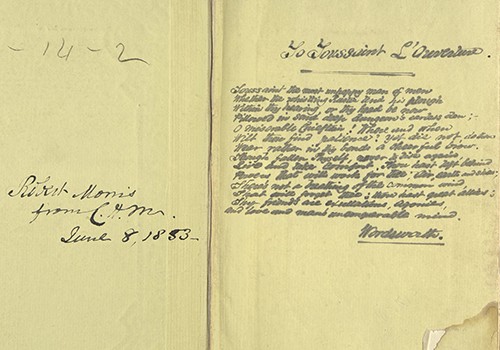 - 14 - 2
Robert Morris
from C. H. M.
June 8, 1853
To Toussaint L'Ouverture.
Toussaint the most unhappy man of men
Whether the whistling Rustic tend his plough
Within thy hearing, or thy head be now
Pillowd in some deep dungeon's earless den; -
O miserable Chieftain! Where and when
Wilt thou find patience! Yet die not; do thou
Wear rather in thy bonds a cheerful brow.
Though fallen thyself, never to rise again,
Live and take comfort. Thou hast left behind
Powers that will work for thee: air, earth and skies;
There's not a breathing of the common wind
That will forget thee: thou hast great allies:
Thy friends are exultations, agonies,
And love and man's unconquerable mind.
Wordsworth.